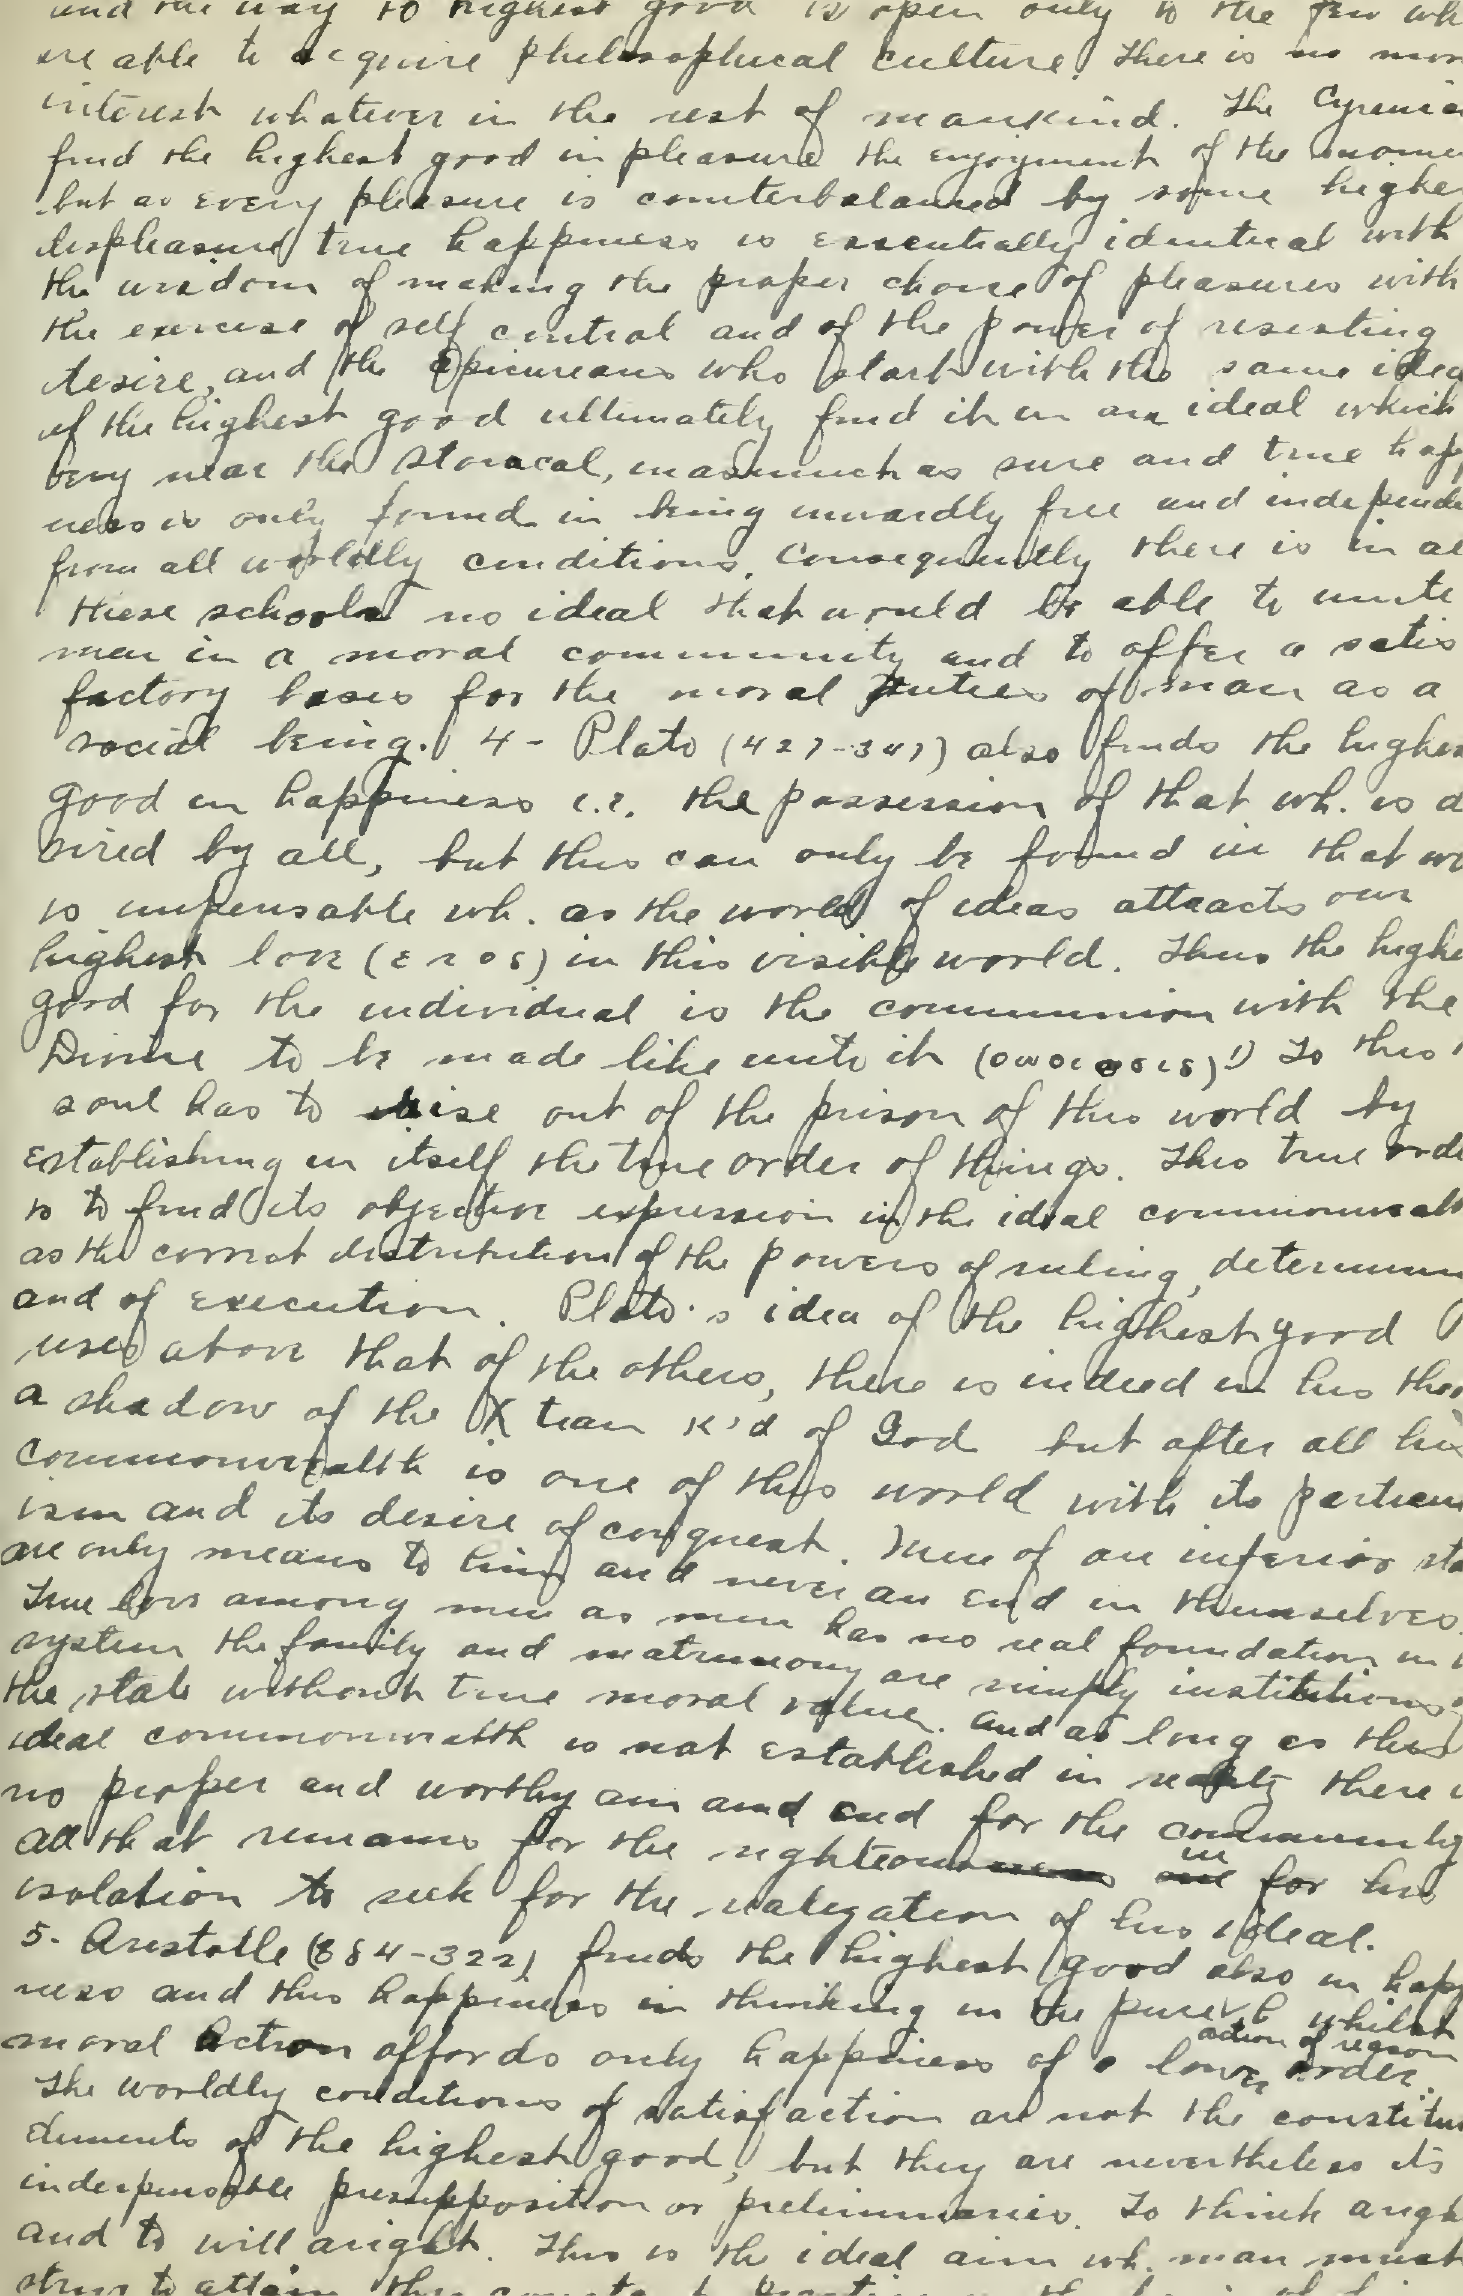 and the way to highest good is open only to the few wh
are able to acquire philosophical culture. There is no mor
interest whatever in the rest of mankind. The Cyrenia
find the highest good in pleasure the enjoyment of the mome
but as every pleasure is counterbalanced by some highe
displeasure true happiness is essentially identical with
the wisdom of making the proper choice of pleasures with
the exercise of self control and of the power of resisting
desire, and the epicureans who start with the same idea
of the highest good ultimately find it in an ideal which
very near the Stoical, inasmuch as sure and true hap
ness is only found in being inwardly free and independe
from all worldly conditions. Consequently there is in al
these schools no ideal that would be able to unite
men in a moral community and to offer a satis
factory basis for the moral duties of man as a
social being. 4 - Plato (427-347) also finds the highes
good in happiness i.e. the possession of that wh. is d
sired by all, but this can only be found in that w
is wh. as the world of ideas attracts our
highest love (εros) in this visible world. Thus the highe
good for the individual is the communion with the
Divine to be made like unto it 1) To this
soul has to rise out of the prison of this world by
establishing in itself the true order of things. This true orde
is to find its objective expression in the ideal commonwealt
as the correct distribution of the powers of ruling, determin
and of execution. Plato's idea of the highest good
rises above that of the others, there is indeed in his theo
a shadow of the Xtian K'd of God but after all his
commonwealth is one of this world with its particu
ism and its desire of conquest. Men of an inferior sta
are only means to him and never an end in themselves.
True love among men as men has no real foundation in
system the family and matrimony are simply institutions
the state without true moral value. And as long as this
ideal commonwealth is not established in reality there i
no proper and worthy aim and end for the community
all that remains for the righteous in for his
isolation to seek for the realization of his ideal.
5. Aristotle (384-322) finds the highest good also in happ
ness and this happiness in thinking in the pure whilst
action of reason
moral action affords only happiness of a lower order.
The worldly conditions of satisfaction are not the constitu
elements of the highest good, but they are nevertheless its
indespensable presupposition or preliminaries. To think arigh
and to will aright. This is the ideal aim wh. man must
strive to attain